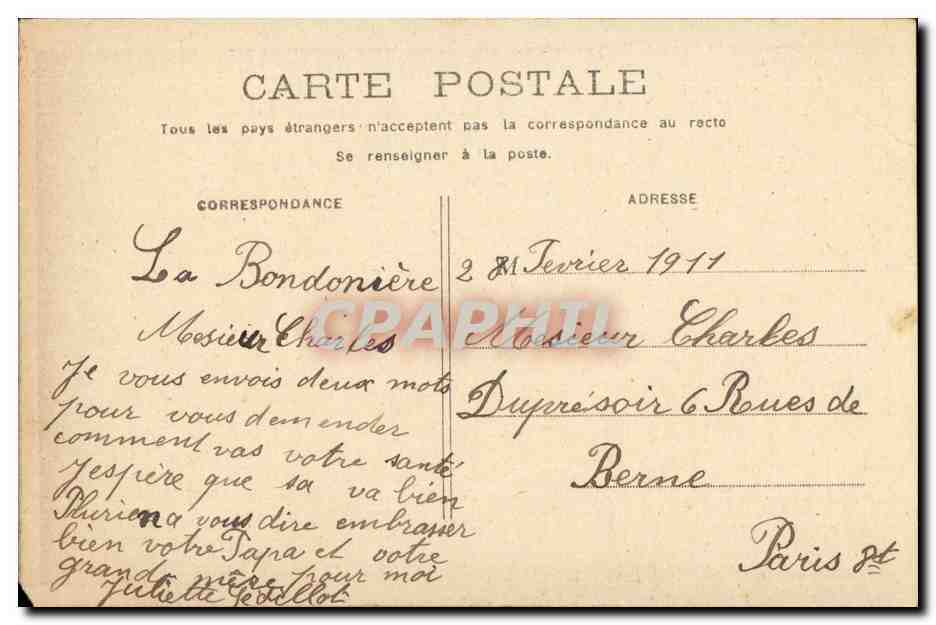 CARTE POSTALE
Tous les pays étrangers n'acceptent pas la correspondance au recto
Se renseigner à la poste.
CORRESPONDANCE
La Bondonière
Mesieur Charles
Je vous envois deux mots
pour vous demender
comment vas votre santé
J'espère que sa va bien
a vous dire embrasser
bien votre Papa et votre
grand mère pour moi
Juliette
ADRESSE
2 Fevrier 1911
Mesieur Charles
Duprésoir 6 Rues de
Berne
Paris
CPAPHIL